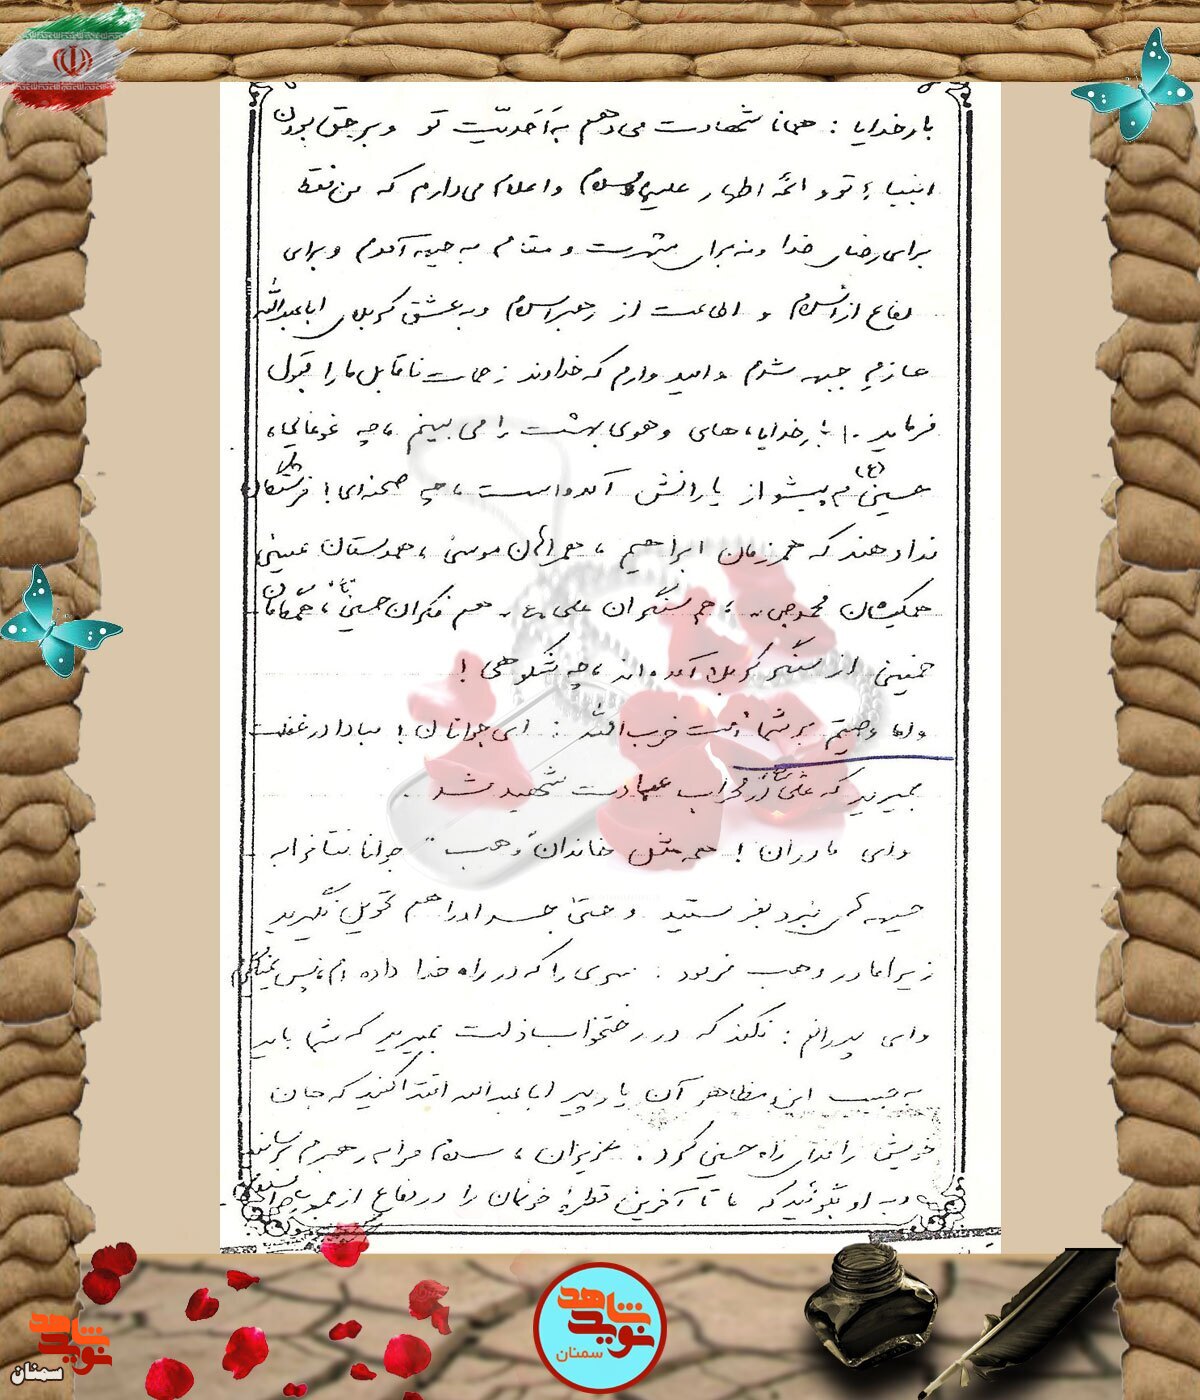 بارخدایا : همانا شهادت می‌دهم به اَحَدیّت تو و بر حق بودن
انبیاء تو و ائمه اطهار علیهم‌السلام و اعلام می‌دارم که من فقط
برای رضای خدا و نه برای شهرت و مقام به جبهه آمدم و برای
دفاع از اسلام و اطاعت از رهبر اسلام و به عشق کربلای اباعبدالله
عازم جبهه شدم و امیدوارم که خداوند زحمات ناقابل ما را قبول
فرماید . بارخدایا، های و هوی بهشت را می بینم ، چه غوغائی،
حسین (ع) به پیشواز یارانش آمده است ، چه صحنه‌ای! فرشتگان
ندا دهند که همرزمان ابراهیم ، همراهان موسی ، همدستان عیسی
همکیشان محمد ، هم سنگران علی ع ، هم فکران حسین ع ،
خمینی از سنگر کربلا آمده‌اند ، چه شکوهی !
و اما وصیتم بر شما امت حزب الله : ای جوانان ! مبادا در غفلت
بمیرید که علی در محراب عبادت شهید شد .
و ای مادران ! همه مثل خاندان وهب جوانانتان را به
جبهه های نبرد بفرستید و حتی جسد او را هم تحویل نگیرید
زیرا مادر وهب فرمود : سری را که در راه خدا داده‌ام ، پس نمیگیرم
و ای پدرانم : نکند که در رختخواب ذلت بمیرید که شما باید
به حبیب ابن مظاهر آن یار پیر اباعبدالله اقتدا کنید که جان
خویش را فدای راه حسین کرد . عزیزان ، سلام مرا به رهبرم برسانید
و به او بگوئید که ما تا آخرین قطره خونمان را در دفاع از
شاهد
نوید
سمنان
شاهد
نوید
سمنان